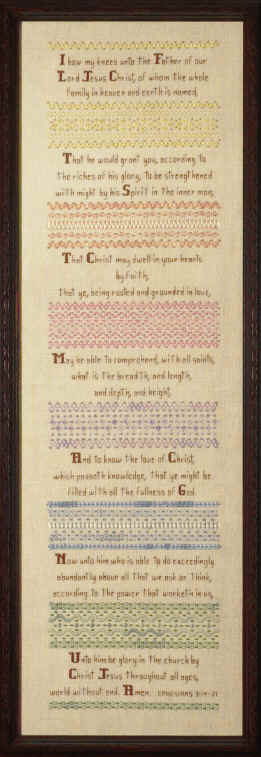 I bow my knees unto the Father of our
Lord Jesus Christ, of whom the whole
family in heaven and earth is named,
That he would grant you, according to
the riches of his glory, to be strengthened
with might by his Spirit in the inner man;
That Christ may dwell in your hearts
by faith;
that ye, being rooted and grounded in love,
May be able to comprehend, with all saints,
what is the breadth, and length,
and depth, and height,
And to know the love of Christ,
which passeth knowledge, that ye might be
filled with all the fullness of God.
Now unto him who is able to do exceedingly
abundantly above all that we ask or think,
according to the power that worketh in us,
Unto him be glory in the church by
Christ Jesus throughout all ages,
world without end. Amen. EPHESIANS 3:14-21